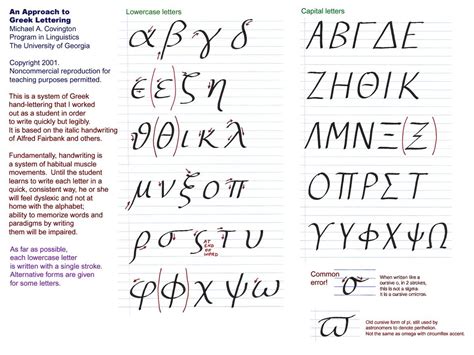 An Approach to
Greek Lettering
Michael A. Covington
Program in Linguistics
The University of Georgia
Copyright 2001.
Noncommercial reproduction for
teaching purposes permitted.
This is a system of Greek
hand-lettering that I worked
out as a student in order
to write quickly but legibly.
It is based on the italic handwriting
of Alfred Fairbank and others.
Fundamentally, handwriting is
a system of habitual muscle
movements. Until the student
learns to write each letter in a
quick, consistent way, he or she
will feel dyslexic and not at
home with the alphabet;
ability to memorize words and
paradigms by writing
them will be impaired.
As far as possible,
each lowercase letter
is written with a single stroke.
Alternative forms are given
for some letters.
Lowercase letters
α β γ δ
ϵ (ε) ζ η
ϑ (θ) ι κ λ
μ ν ξ ο π
ρ σ ς τ υ
AT
END
OF
WORD
φ (ϕ) χ ψ ω
Capital letters
Α Β Γ Δ Ε
Ζ Η Θ Ι Κ
Λ Μ Ν Ξ (Ξ)
Ο Π Ρ Σ Τ
Υ Υ Φ Χ Ψ Ω
Common
error!
σ
When written like a
cursive o, in 2 strokes,
this is not a sigma
it is a cursive omicron.
ϖ
Old cursive form of pi, still used by
astronomers to denote perihelion.
Not the same as omega with circumflex accent.